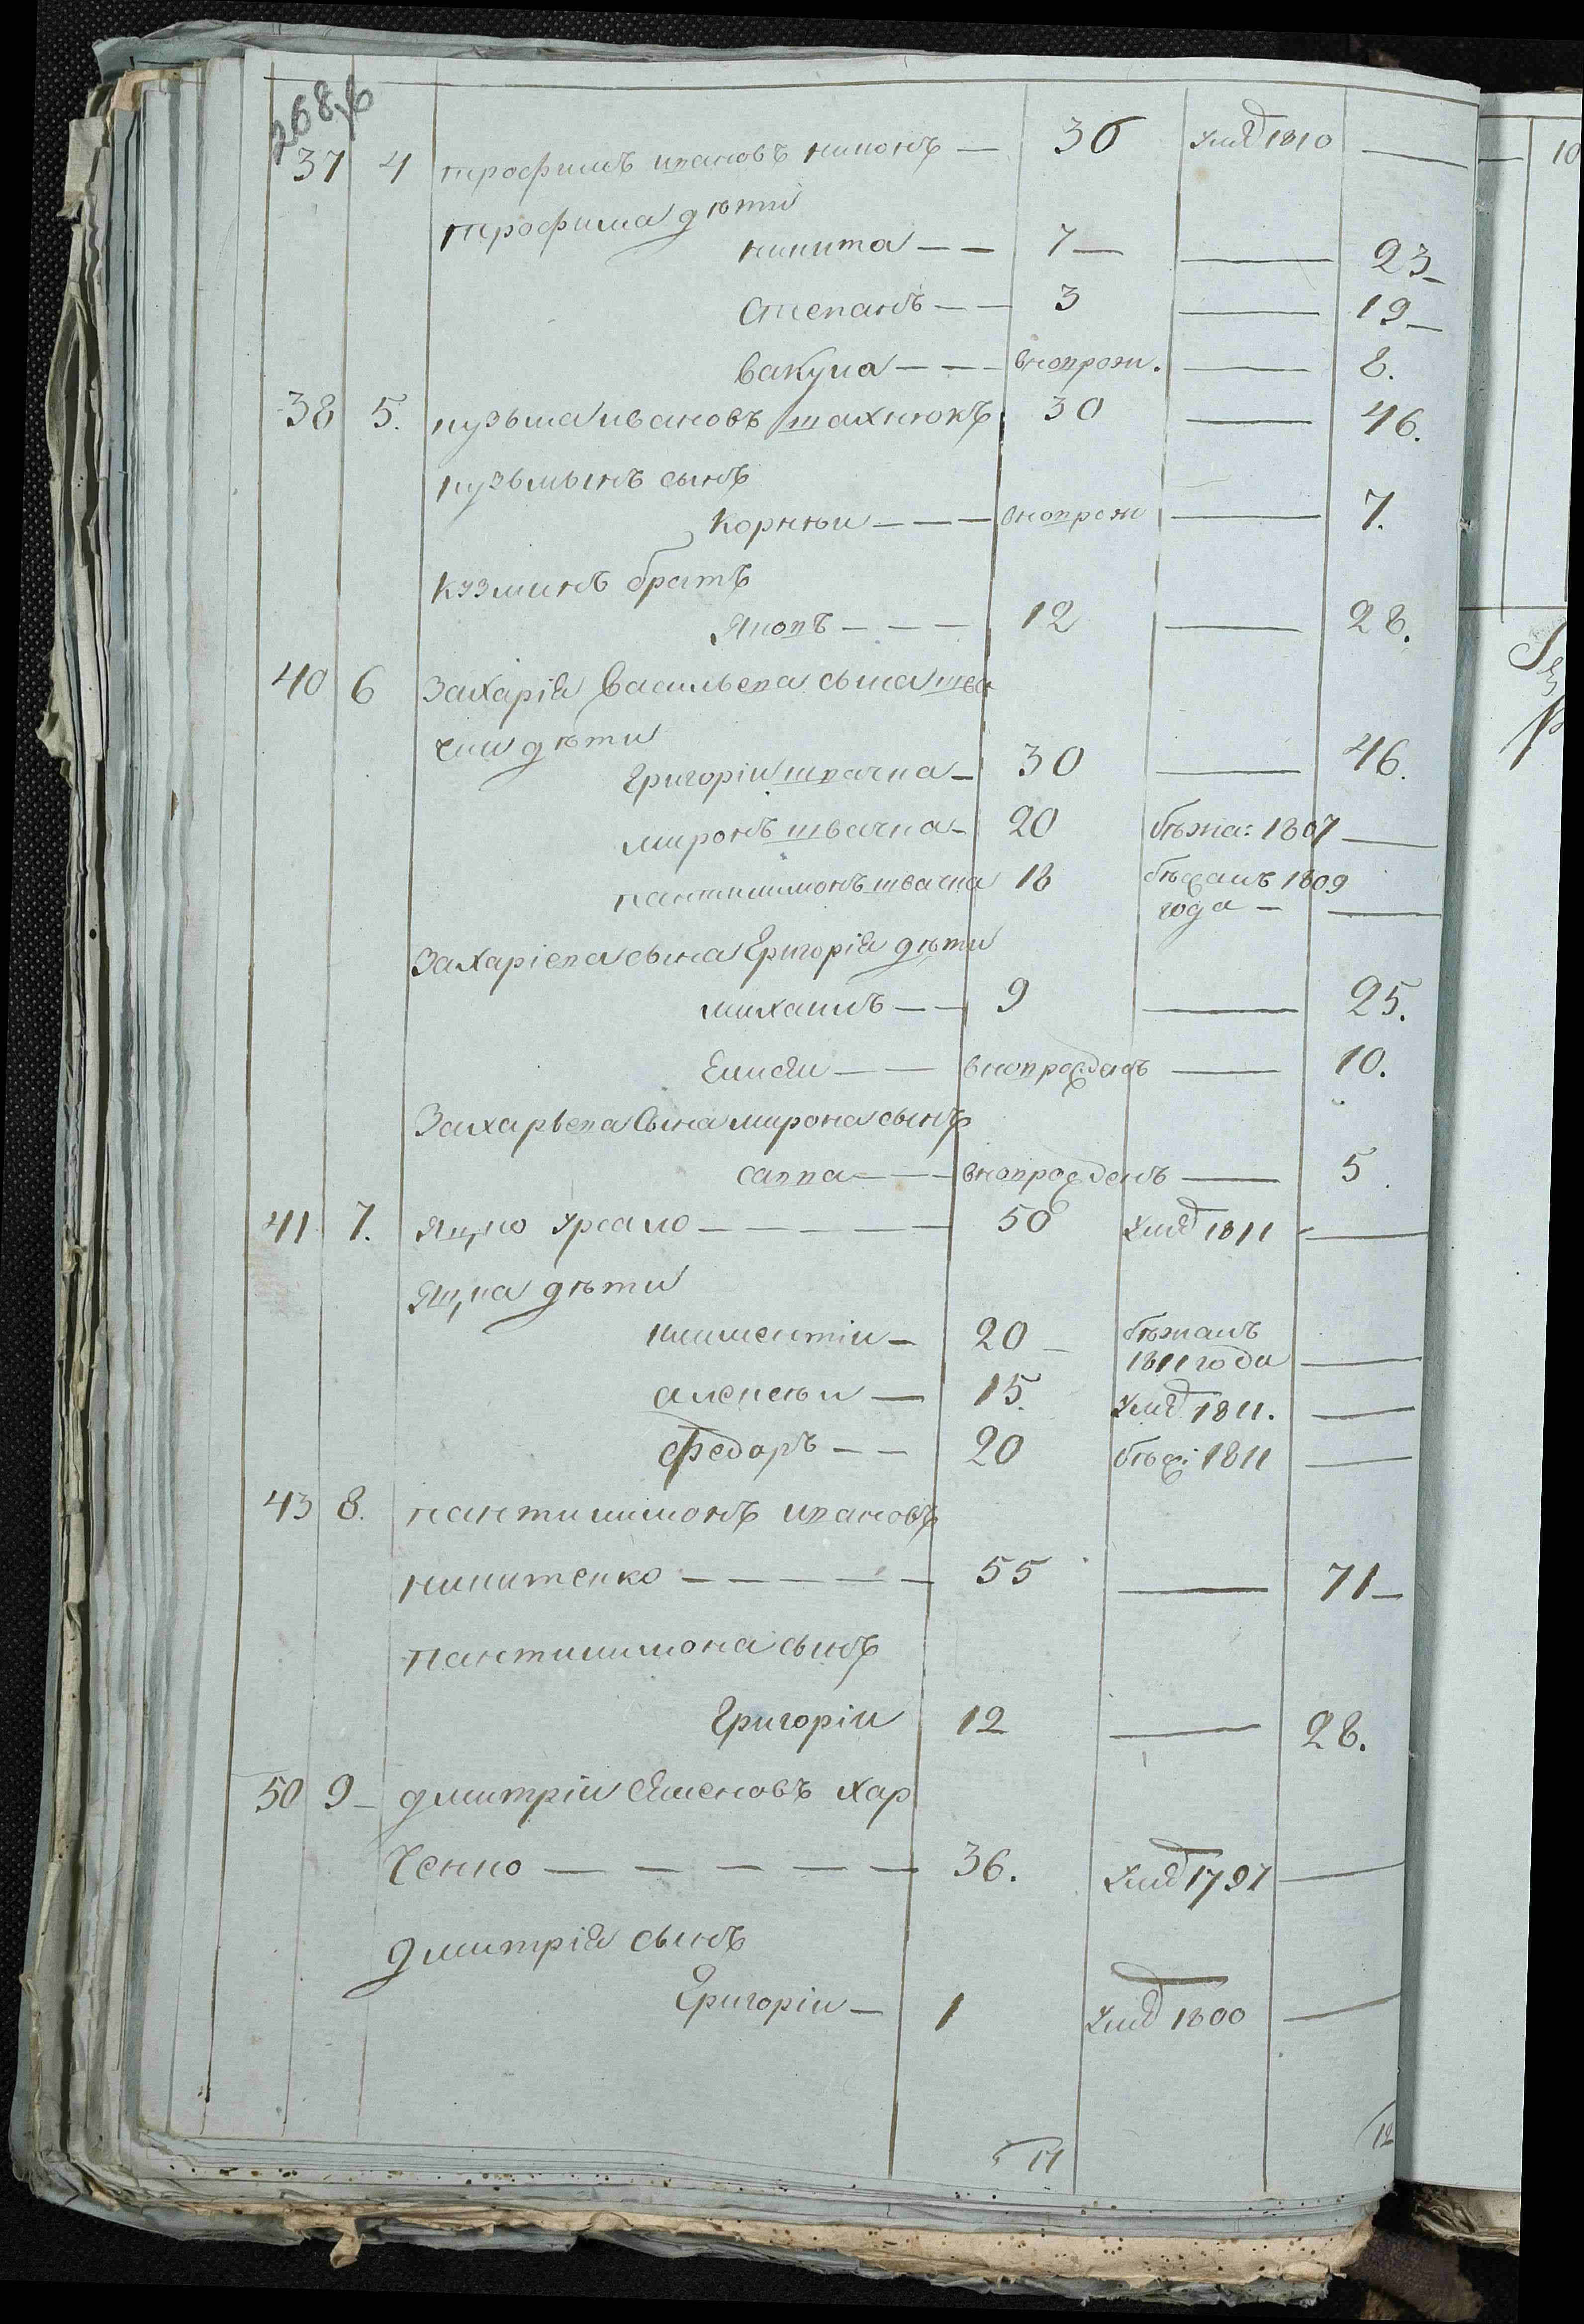 268об
37 4 трофимъ ивановъ — 36 умер 1810 —
трофима дѣти
никита — — 7 — — 23
Степанъ — — 3 — 19
вакула — — — вноврож. — 8.
38 5. кузьма ивановъ шахнюкъ 30 — 46.
кузьминъ сынъ
Корнѣи — — — вноврож — 7.
кузминъ братъ
Яковъ — — — 12 — 28.
40 6 Захарія васильева сына шва
чки дѣти
Григоріи швачка — 30 — 46.
миронъ швачка — 20 бѣжа: 1807 —
пантилимонъ швачка 18 бѣжалъ 1809
года — —
Захаріева сына Григорія дѣти
михаилъ — — 9 — 25.
Елисѣи — — вноврожденъ — 10.
Захарьева Сына мирона сынъ
савва — — — вноврожденъ — 5.
41 7. Яцко — — — — — 50 умер 1811 —
Яцка дѣти
климентіи — 20 — бѣжалъ
1811 года —
алексѣи — 15. умер 1811. —
федоръ — — 20 бѣж: 1811 —
43 8. пантилимонъ ивановъ
никитенко — — — — — 55 — 71 —
пантилимона сынъ
Григоріи 12 — 28.
50 9 — дмитріи Семеновъ хар
ченко — — — — — 36. умер 1797 —
дмитрія сынъ
Григоріи — 1 умер 1800 —
17 12